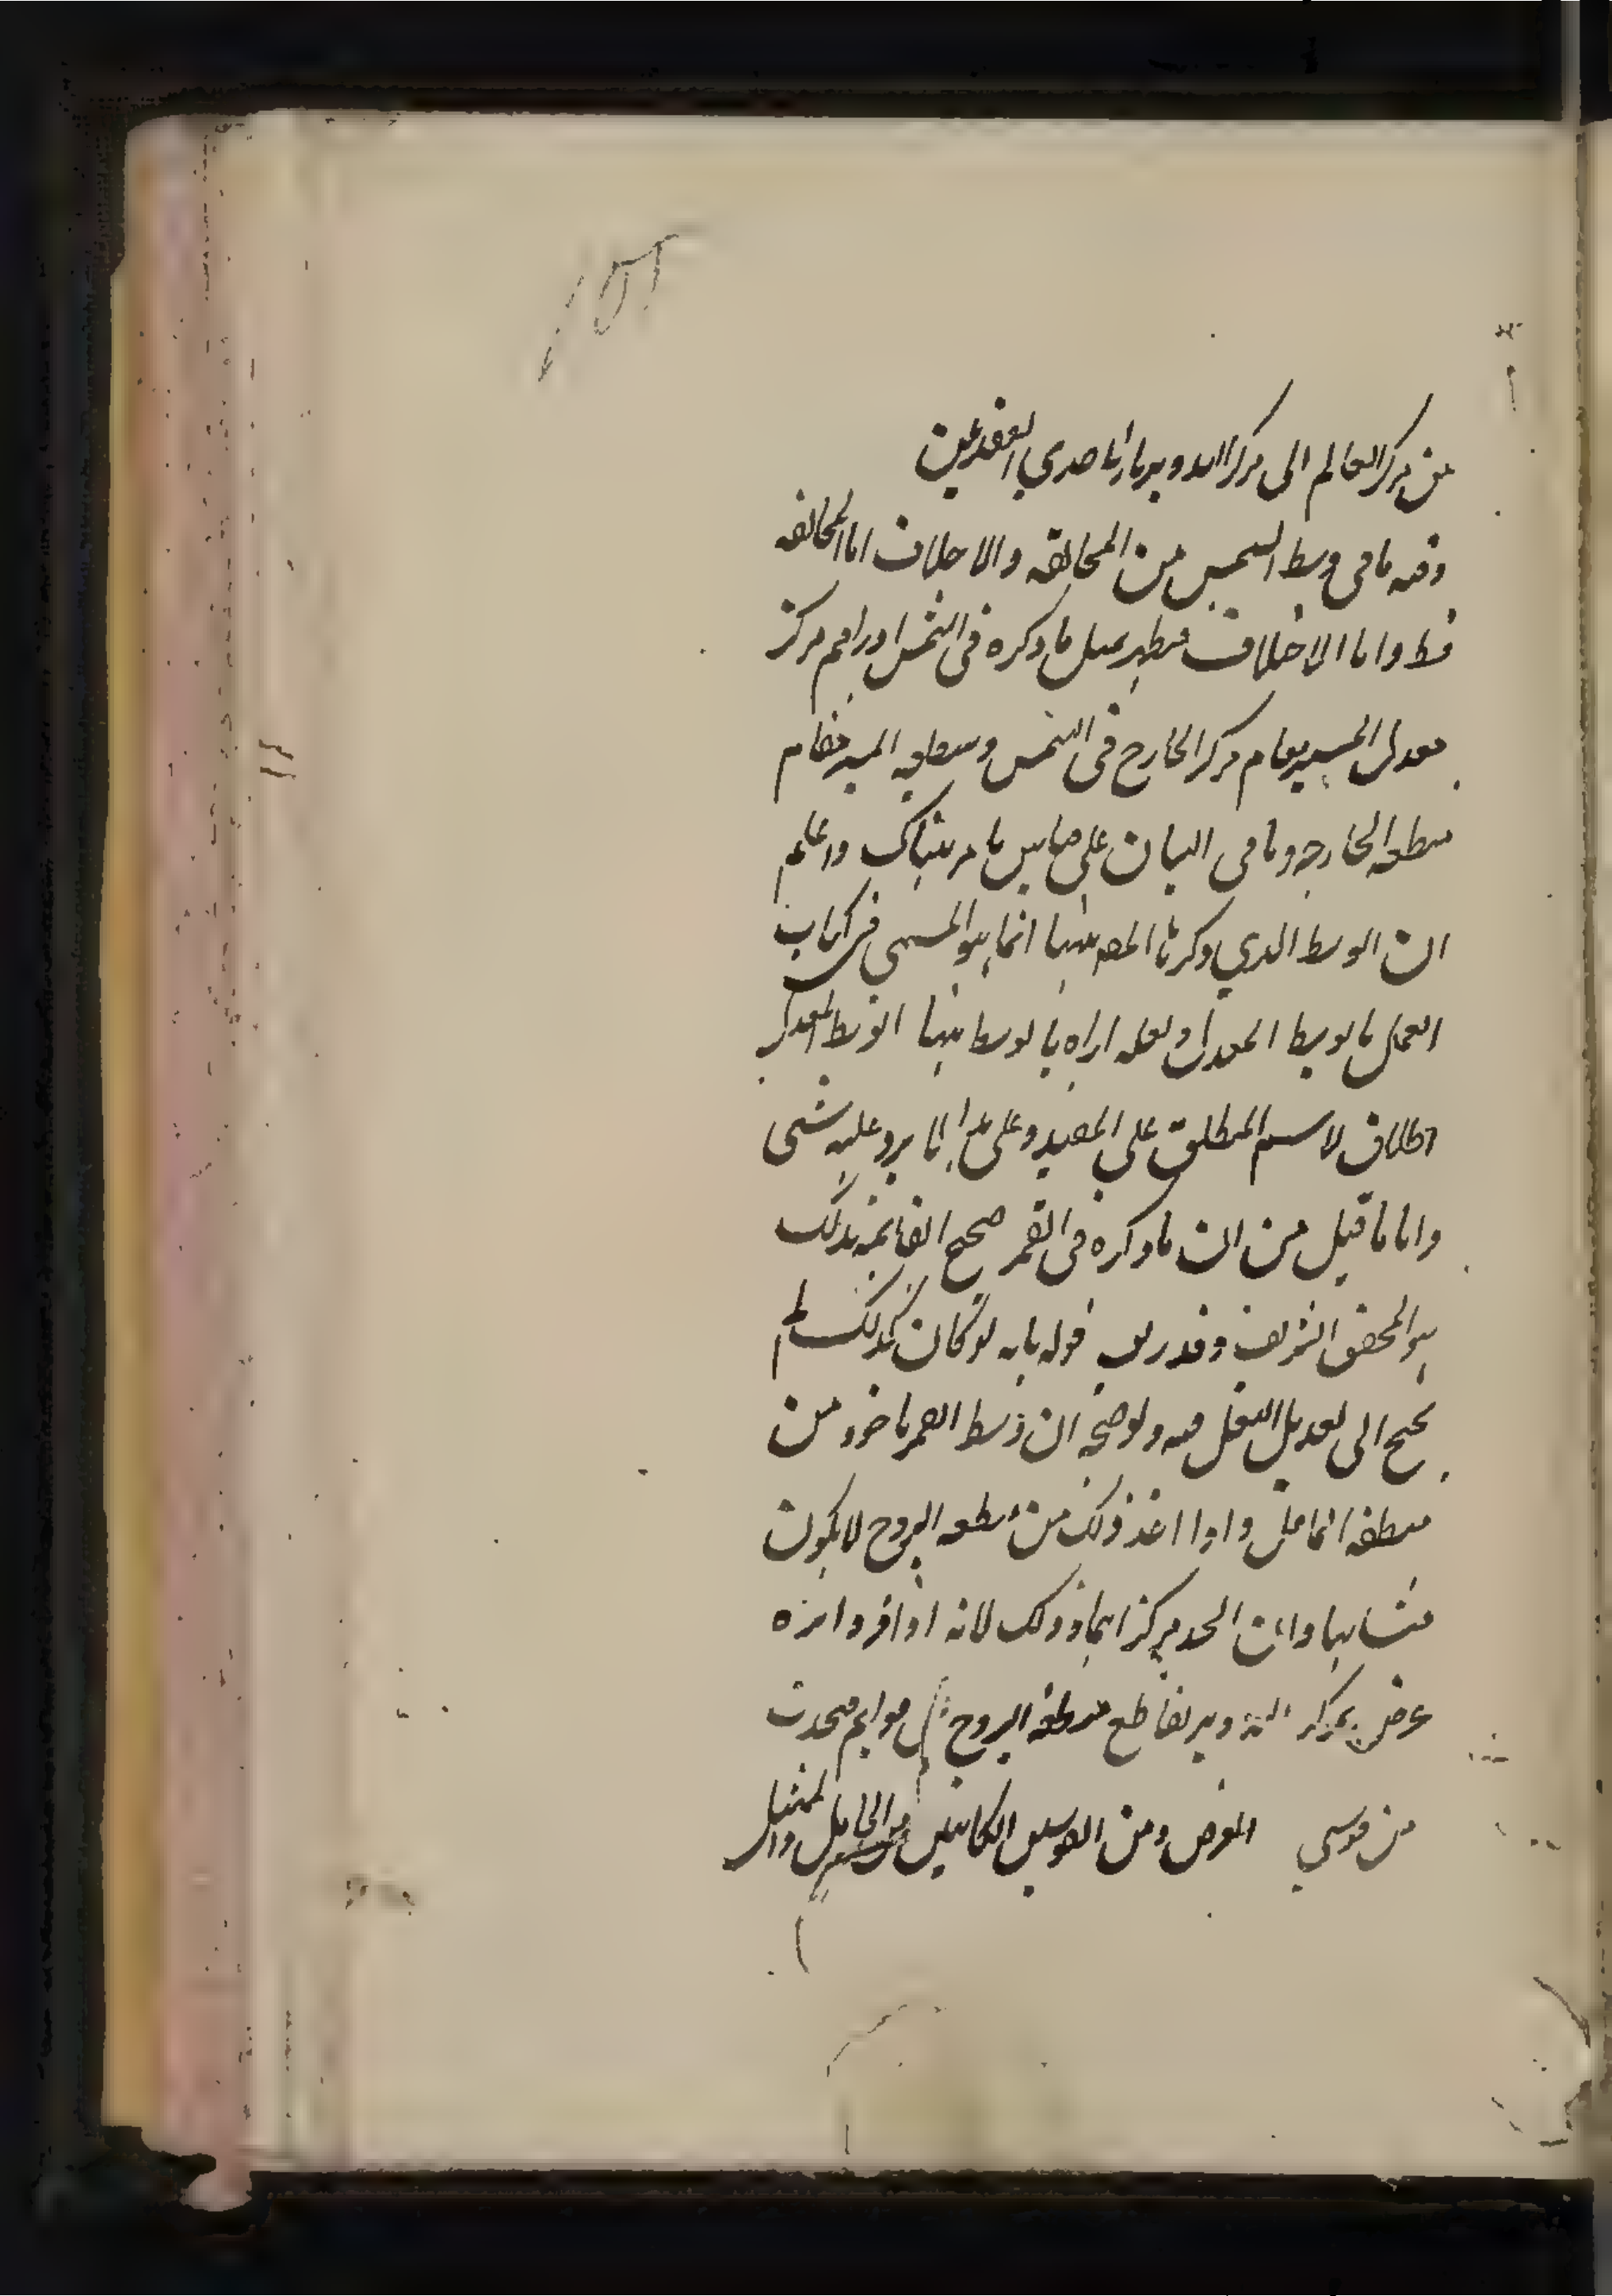 من مركز العالم الى مركز التدوير مارا باحدي العقدتين
وفيه ما في وسط الشمس من المخالفة والاختلاف اما المخالفة
فظ واما الاختلاف فيظهر بمثل ما ذكره في الشمس اذا اقيم مركز
معدل المسير مقام مركز الخارج في الشمس ومنطقة المسير مقام
منطقة الخارج وباقي البيان على قياس ما مر هناك واعلم
ان الوسط الذي ذكره المص ههنا انما هو المسمى في كتاب
العمل بالوسط المعدل ولعله اراد بالوسط ههنا الوسط المعدل
اطلاق لاسم المطلق على المقيد وعلى هذا لا يرد عليه شئ
واما ما قيل من ان ما ذكره في القمر صحيح القائل بذلك
هو المحقق الشريف وقد زيف قوله بانه لو كان كذلك لم
يحتج الى تعديل النقل فيه وتوضيحه ان وسط القمر ماخوذ من
منطقة المائل واذا اخذ ذلك من منطقة البروج لا يكون
متشابها وان اتحد مركزاهما وذلك لانه اذا فرض دائرة
عرض بمركز التدوير تقاطع منطقة البروج على قوائم فيحدث
من قوسي العرض ومن القوسين الكائنين من المائل والممثل